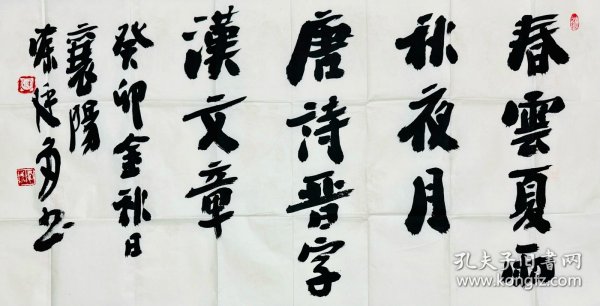 春雲夏雨
秋夜月
唐詩晉字
漢文章
癸卯金秋日
襄陽
孔夫子旧书网
www.kongfz.com